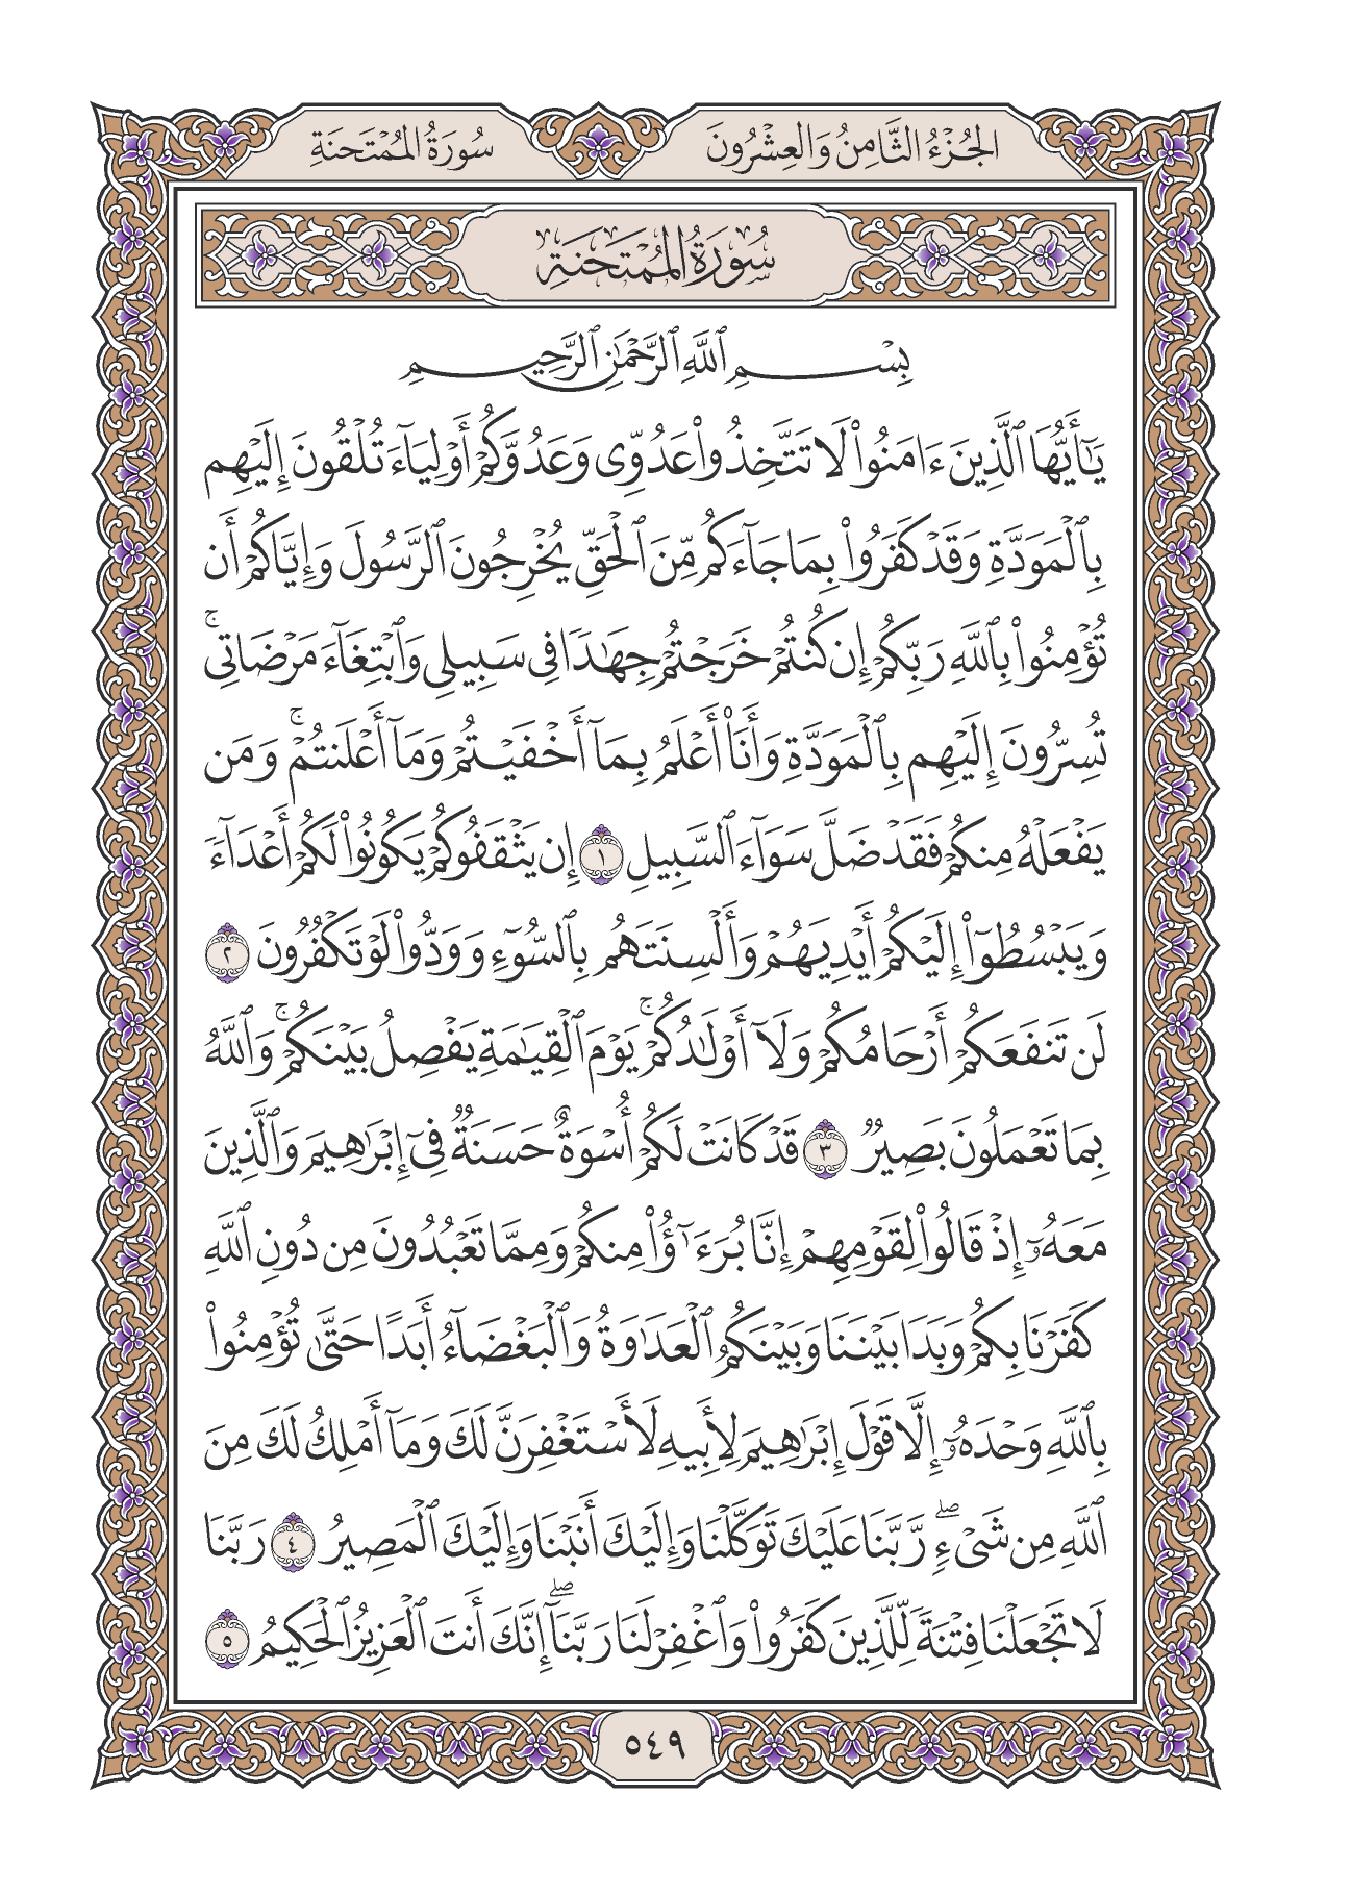 الجُزْءُ الثَّامِنُ وَالعِشْرُونَ
سُورَةُ المُمْتَحنَةِ
سُورَةُ المُمْتَحَنَةِ
بِسْمِ ٱللَّهِ ٱلرَّحْمَٰنِ ٱلرَّحِيمِ
يَٰٓأَيُّهَا ٱلَّذِينَ ءَامَنُوا۟ لَا تَتَّخِذُوا۟ عَدُوِّى وَعَدُوَّكُمْ أَوْلِيَآءَ تُلْقُونَ إِلَيْهِم
بِٱلْمَوَدَّةِ وَقَدْ كَفَرُوا۟ بِمَا جَآءَكُم مِّنَ ٱلْحَقِّ يُخْرِجُونَ ٱلرَّسُولَ وَإِيَّاكُمْ أَن
تُؤْمِنُوا۟ بِٱللَّهِ رَبِّكُمْ إِن كُنتُمْ خَرَجْتُمْ جِهَٰدًا فِى سَبِيلِى وَٱبْتِغَآءَ مَرْضَاتِى ۚ
تُسِرُّونَ إِلَيْهِم بِٱلْمَوَدَّةِ وَأَنَا۠ أَعْلَمُ بِمَآ أَخْفَيْتُمْ وَمَآ أَعْلَنتُمْ ۚ وَمَن
يَفْعَلْهُ مِنكُمْ فَقَدْ ضَلَّ سَوَآءَ ٱلسَّبِيلِ ١ إِن يَثْقَفُوكُمْ يَكُونُوا۟ لَكُمْ أَعْدَآءً
وَيَبْسُطُوٓا۟ إِلَيْكُمْ أَيْدِيَهُمْ وَأَلْسِنَتَهُم بِٱلسُّوٓءِ وَوَدُّوا۟ لَوْ تَكْفُرُونَ ٢
لَن تَنفَعَكُمْ أَرْحَامُكُمْ وَلَآ أَوْلَٰدُكُمْ ۚ يَوْمَ ٱلْقِيَٰمَةِ يَفْصِلُ بَيْنَكُمْ ۚ وَٱللَّهُ
بِمَا تَعْمَلُونَ بَصِيرٌ ٣ قَدْ كَانَتْ لَكُمْ أُسْوَةٌ حَسَنَةٌ فِىٓ إِبْرَٰهِيمَ وَٱلَّذِينَ
مَعَهُۥٓ إِذْ قَالُوا۟ لِقَوْمِهِمْ إِنَّا بُرَءَٰٓؤُا۟ مِنكُمْ وَمِمَّا تَعْبُدُونَ مِن دُونِ ٱللَّهِ
كَفَرْنَا بِكُمْ وَبَدَا بَيْنَنَا وَبَيْنَكُمُ ٱلْعَدَٰوَةُ وَٱلْبَغْضَآءُ أَبَدًا حَتَّىٰ تُؤْمِنُوا۟
بِٱللَّهِ وَحْدَهُۥٓ إِلَّا قَوْلَ إِبْرَٰهِيمَ لِأَبِيهِ لَأَسْتَغْفِرَنَّ لَكَ وَمَآ أَمْلِكُ لَكَ مِنَ
ٱللَّهِ مِن شَىْءٍ ۖ رَّبَّنَا عَلَيْكَ تَوَكَّلْنَا وَإِلَيْكَ أَنَبْنَا وَإِلَيْكَ ٱلْمَصِيرُ ٤ رَبَّنَا
لَا تَجْعَلْنَا فِتْنَةً لِّلَّذِينَ كَفَرُوا۟ وَٱغْفِرْ لَنَا رَبَّنَآ ۖ إِنَّكَ أَنتَ ٱلْعَزِيزُ ٱلْحَكِيمُ ٥
٥٤٩